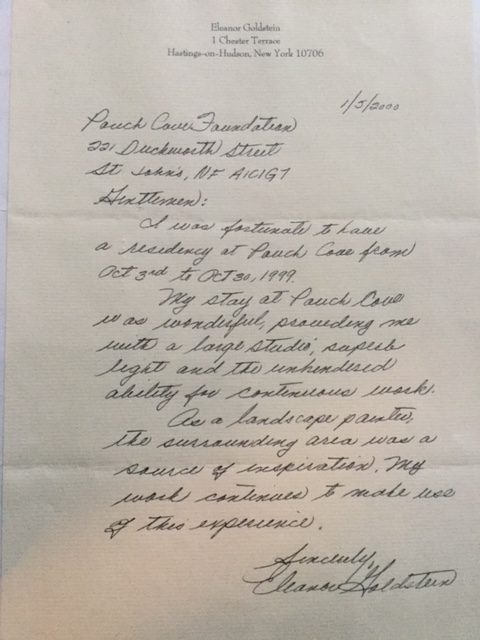 Eleanor Goldstein
1 Chester Terrace
Hastings-on-Hudson, New York 10706
1/5/2000
Pouch Cove Foundation
221 Duckworth Street
St John's, NF A1C1G7
Gentlemen:
I was fortunate to have
a residency at Pouch Cove from
Oct 3rd to Oct 30, 1999.
My stay at Pouch Cove
was wonderful, providing me
with a large studio, superb
light and the unhindered
ability for continuous work.
As a landscape painter,
the surrounding area was a
source of inspiration. My
work continues to make use
of this experience.
Sincerely,
Eleanor Goldstein